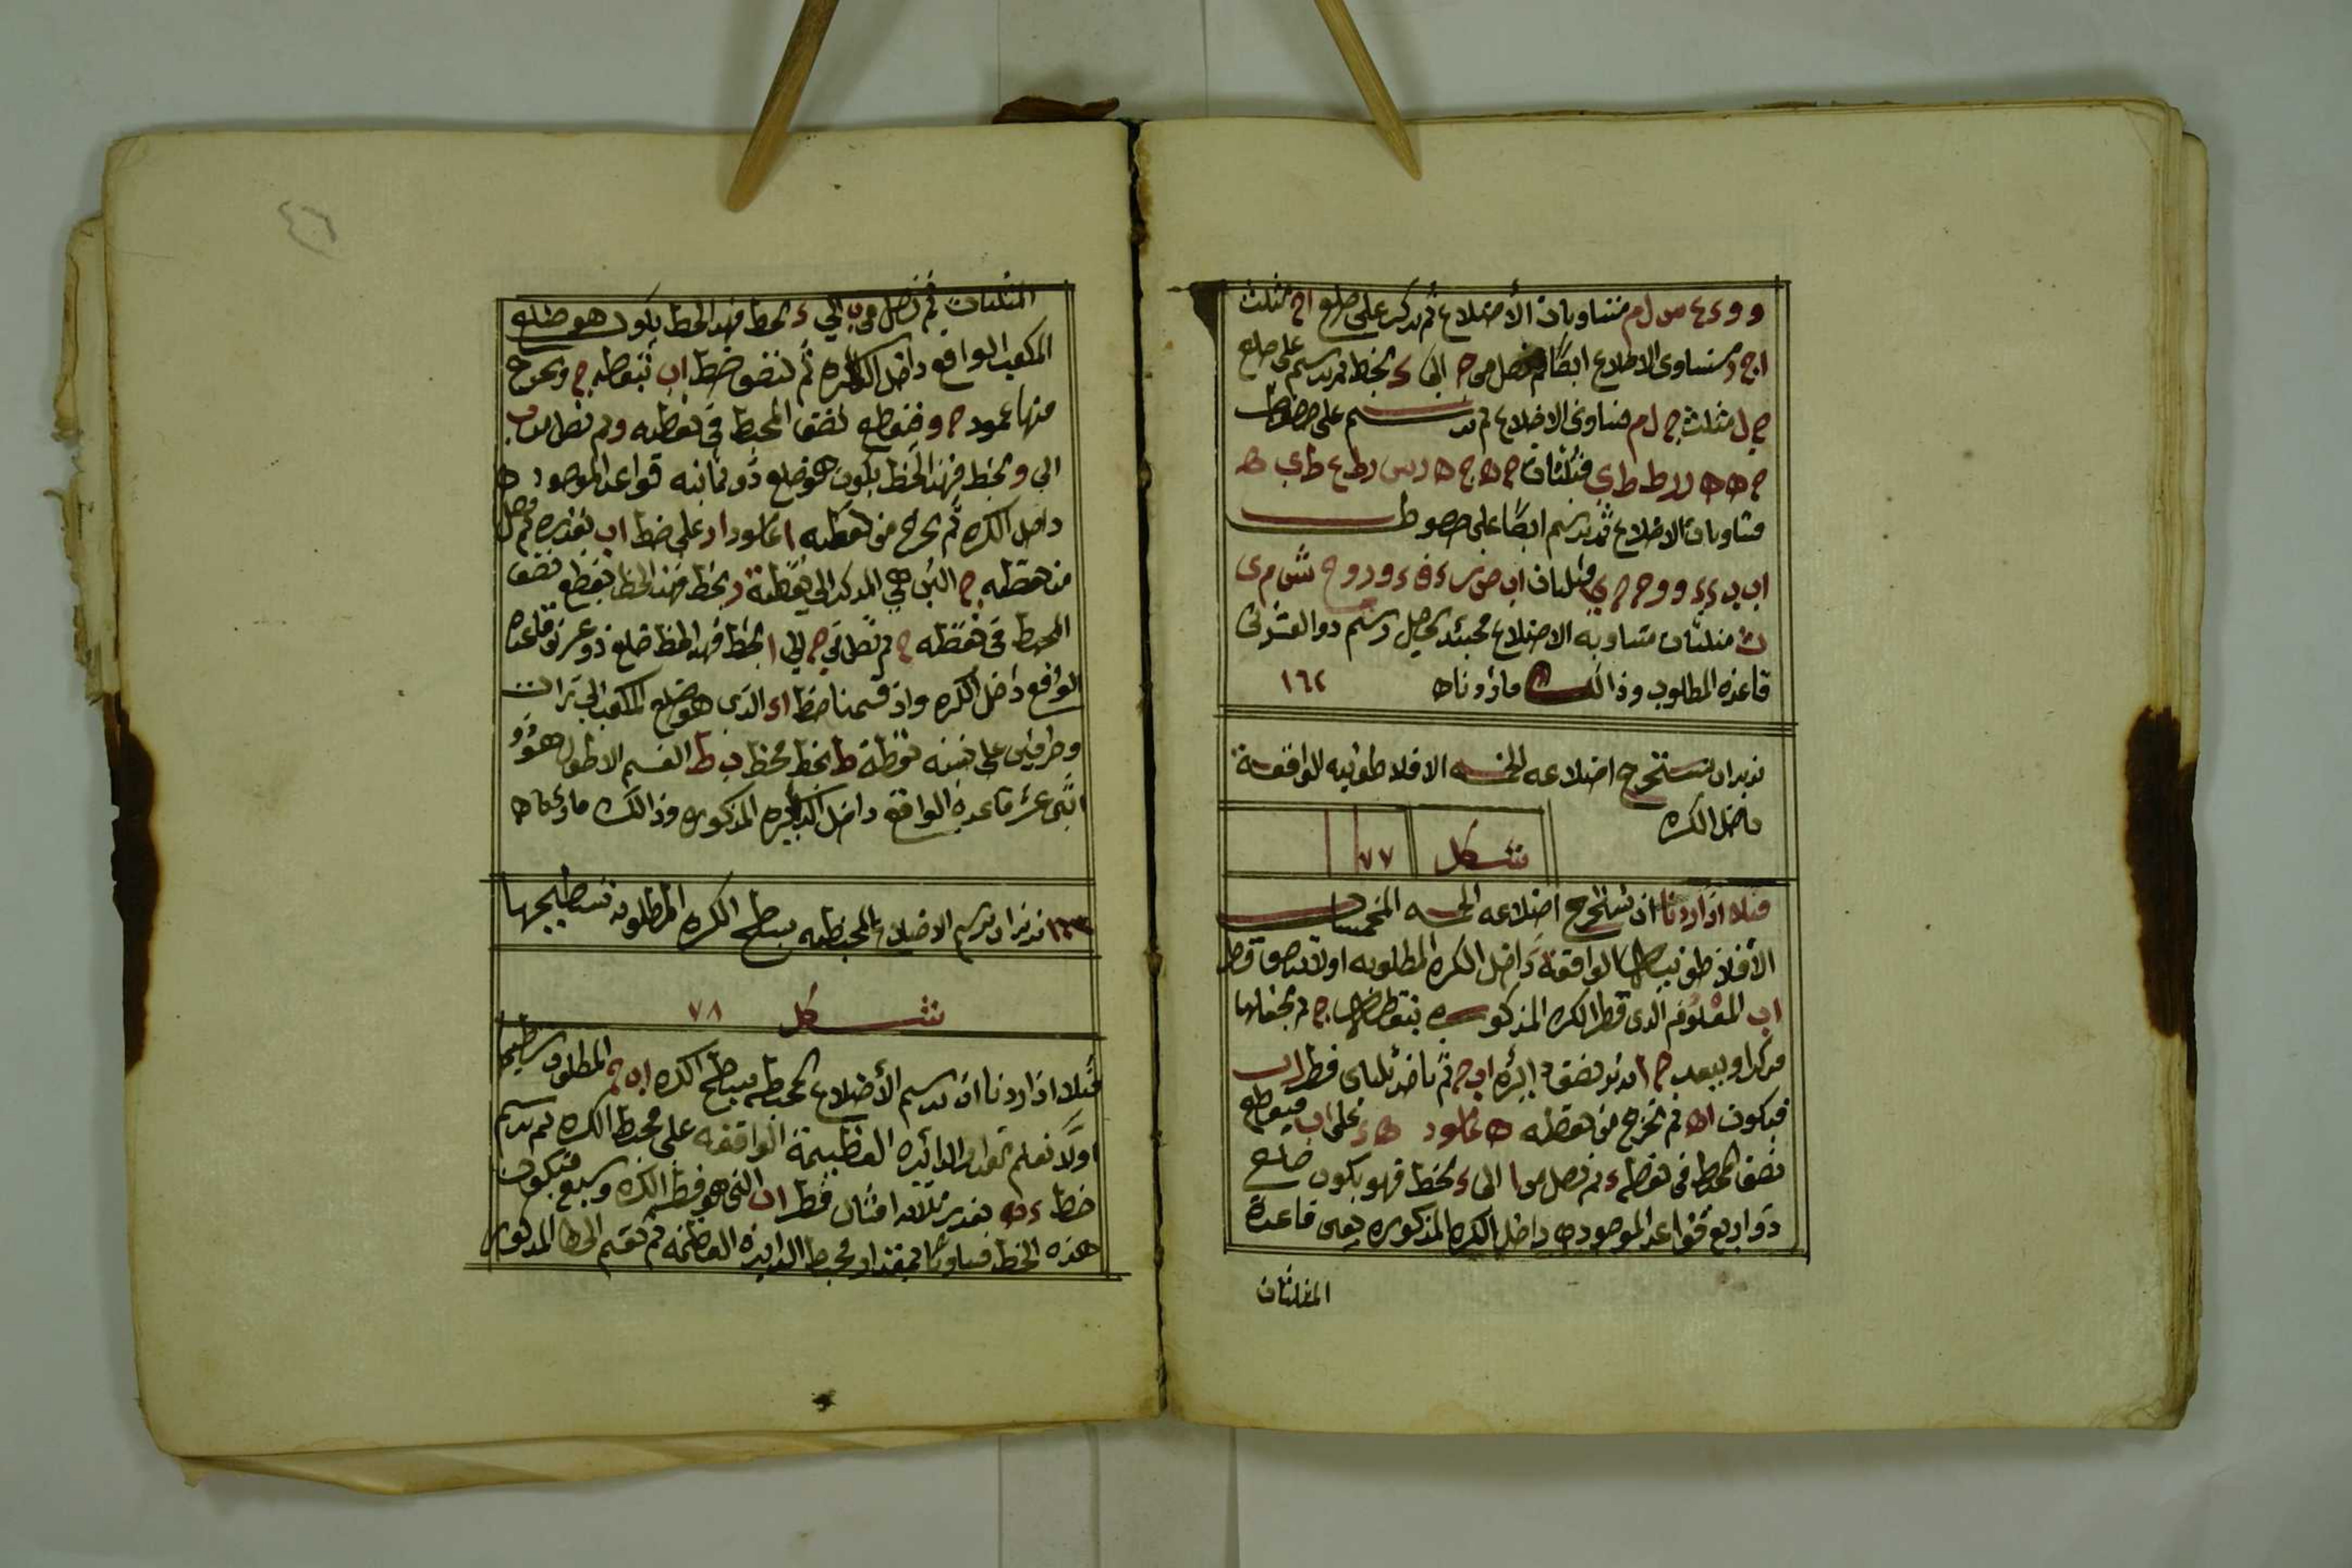 متساويات الأضلاع ثم نركز على ضلع اج مثلث
متساوى الاضلاع ايضًا ثم نصل من ج الى ء بخط ثم نرسم على ضلع
ج ل مثلث ج ل م متساوى الاضلاع ثم نرسم على خطوط
متساويات الاضلاع ثم نرسم ايضًا على خطوط
مثلثات متساوية الاضلاع فحينئذ يحصل رسم ذو العشرين
قاعده المطلوب وذالك ما اردناه ١٦٢
نريد ان نستخرج اضلاعه الخمسه الافلاطونيه الواقعة
داخل الكره
شكل ٧٧
مثلا اذا اردنا ان نستخرج اضلاعه الخمسه المجسمات
الأفلاطونيات الواقعة داخل الكره المطلوبه اولا ننصف قطر
اب المعلوم الذى قطر الكره المذكوره بنقطة ج ثم نجعلها
مركزا وببعد ج ا ندير نصف دائره اب ج ثم ناخذ ثلثاى قطر اب
فيكون اه ثم نخرج من نقطه ه عامود ه ء على اب فيقطع
نصف المحيط فى نقطه ء ثم نصل من ا الى ء بخط فهو يكون ضلع
ذو اربع قواعد الموجوده داخل الكره المذكوره يعنى قاعدة
المثلثات
المثلثات ثم نصل من ب الى ء بخط فهذ الخط يكون هو ضلع
المكعب الواقع داخل الكره ثم ننصف خط اب بنقطه ج ونخرج
منها عمود ج و فنقطع نصف المحيط فى نقطه و ثم نصل من ب
الى و بخط فهذ الخط يكون هو ضلع ذو ثمانيه قواعد الموجوده
داخل الكره ثم نخرج من نقطه ا عامود ا ر على خط اب بقدره ثم نصل
من نقطه ج التى هى المركز الى نقطة ر بخط فهذ الخط يقطع نصف
المحيط فى نقطه ح ثم نصل من ح الى ا بخط فهذ الخط ضلع ذو عشرين قاعده
الواقع داخل الكره واذ قسمنا خط الذى هو ضلع المكعب الى
وطرفين على نسبه نقطة ط بخط فخط ب ط القسم الاطول هو ذو
اثنى عشر قاعدة الواقع داخل الكره المذكوره وذالك ما اردناه
١٦٣ نريد ان نرسم الاضلاع المحيطه بسطح الكره المطلوبه تسطيحها
شكل ٧٨
مثلا اذا اردنا ان نرسم الأضلاع المحيطه بسطح الكره اب ج المطلوب تسطيحها
اولًا نعلم مقدار الدائره العظيمة الواقعه على محيط الكره ثم نرسم
خط ء ه بقدر ثلاثه امثال قطر اب التى هو قطر الكره وسبع فيكون
هذه الخط مساويًا بمقدار محيط الدايره العظيمه ثم نقسم الخط المذكور